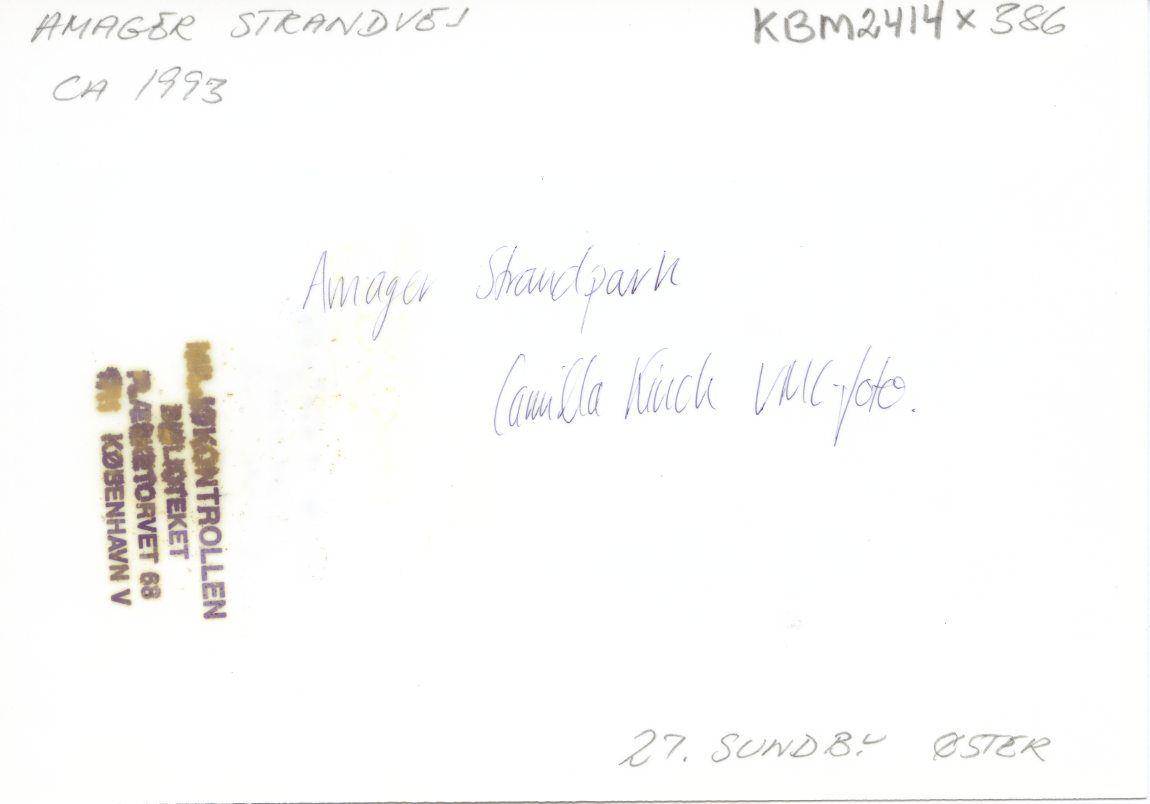 AMAGER STRANDVEJ
KBM2414 x 386
CA 1993
Amager Strandpark
Camilla VMC-foto.
MILJØKONTROLLEN
BIBLIOTEKET
FLÆSKETORVET 68
KØBENHAVN V
27. SUNDBY ØSTER